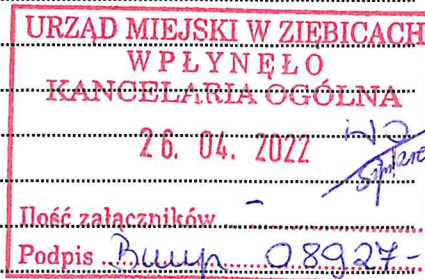 URZĄD MIEJSKI W ZIĘBICACH
WPŁYNĘŁO
KANCELARIA OGÓLNA
26. 04. 2022
Ilość załączników -
Podpis 08927-